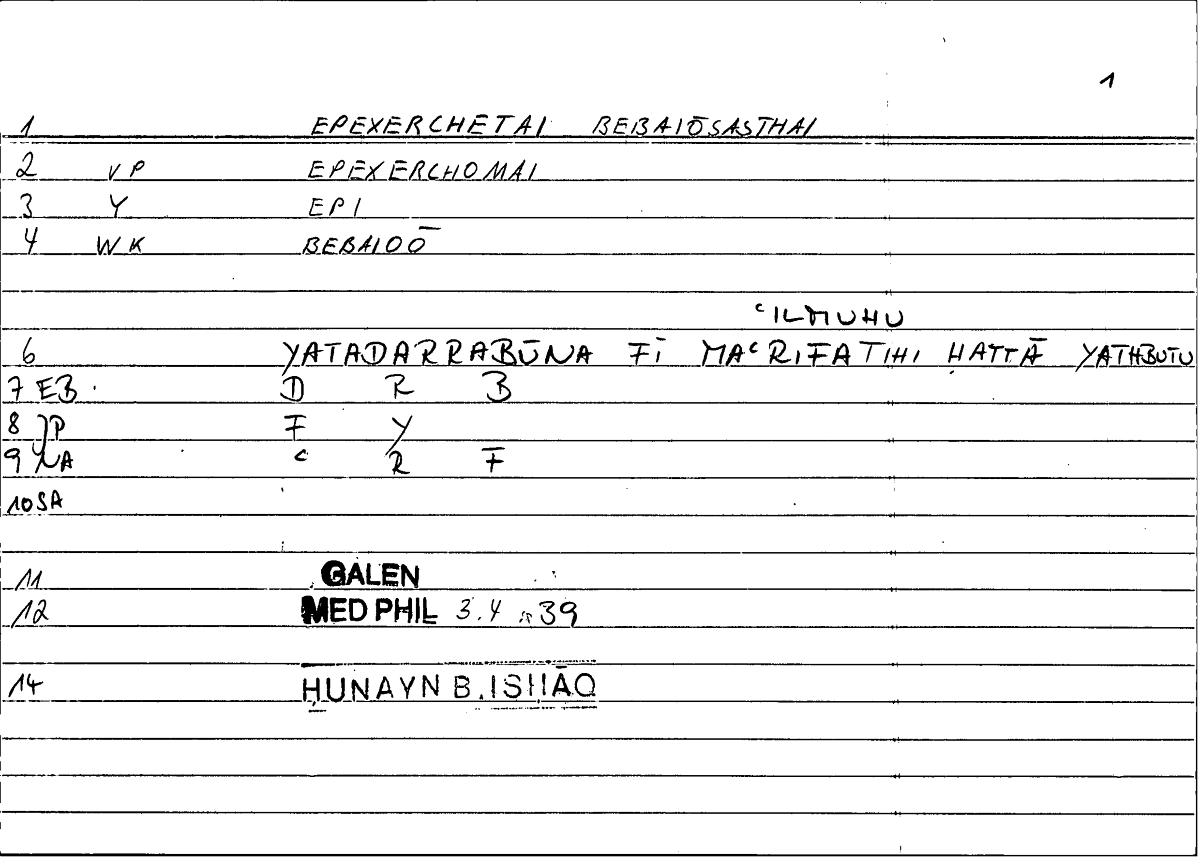 1
1 EPEXERCHETAI BEBAIŌSASTHAI
2 VP EPEXERCHOMAI
3 Y EPI
4 WK BEBAIOŌ
ᶜILMUHU
6 YATADARRABŪNA FĪ MAᶜRIFATIHI ḤATTĀ YATHBUTU
7 EB D R B
8 JP F Y
9 NA ᶜ R F
10 SA
11 GALEN
12 MED PHIL 3.4 39
14 ḤUNAYN B. ISḤĀQ